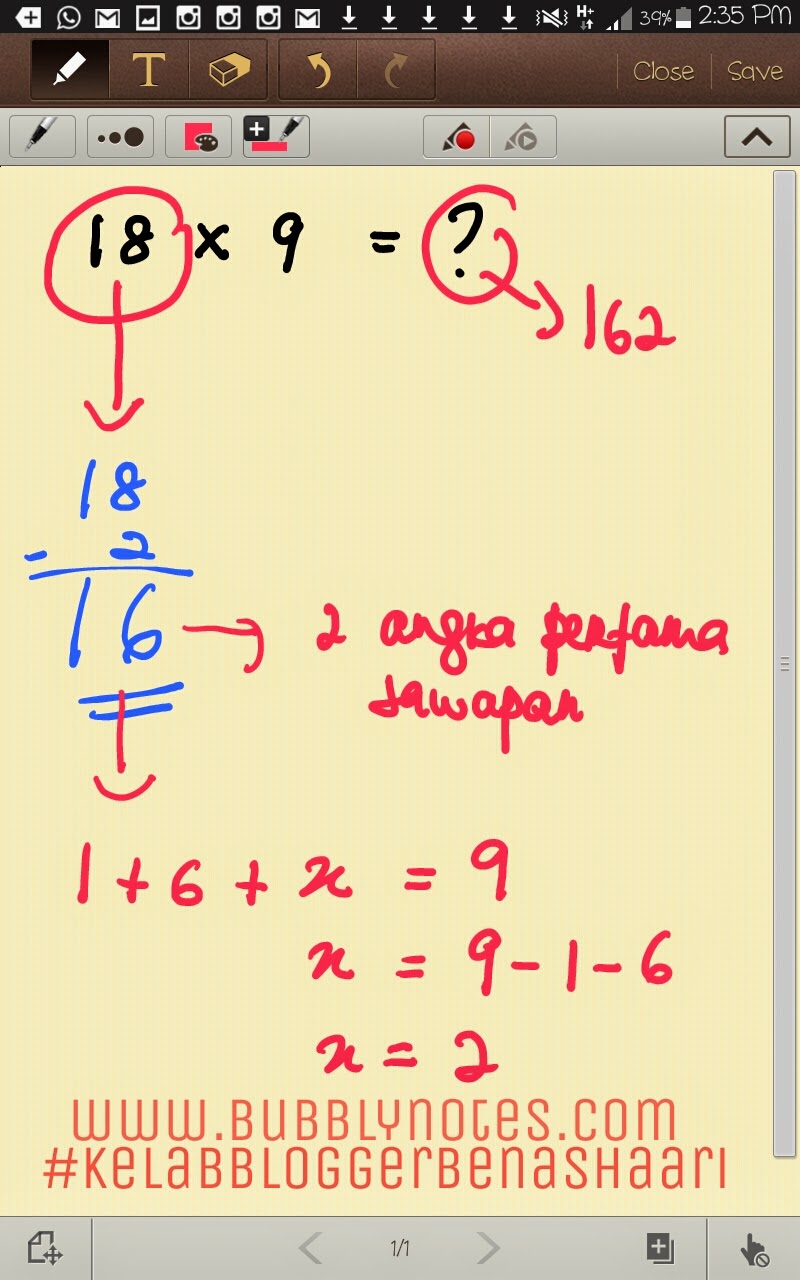 H+ 39% 2:35 PM
T Close Save
18 x 9 = ?
162
18
- 2
16 2 angka pertama
jawapan
1 + 6 + x = 9
x = 9 - 1 - 6
x = 2
www.BUBBLYNOTES.COM
#KELABBLOGGERBENASHAARI
1/1